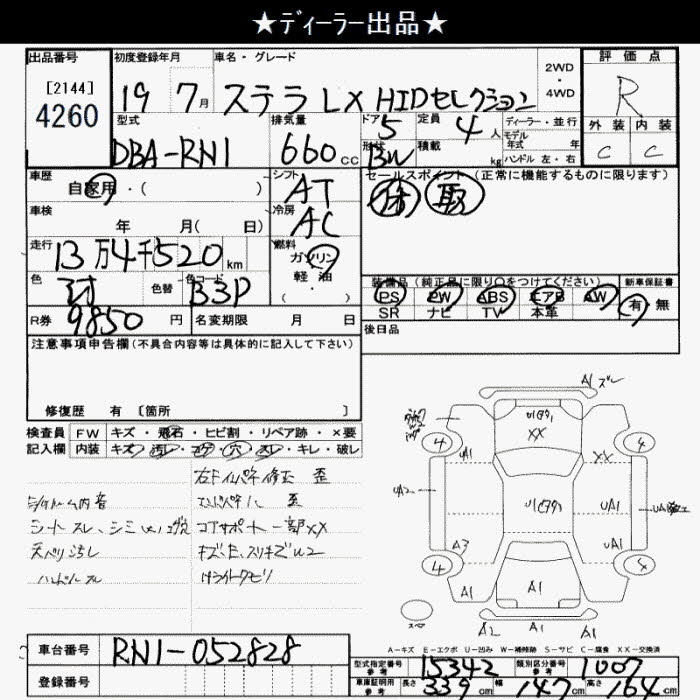 ★ディーラー出品★
出品番号
[2144]
4260
初度登録年月
19 7月
車名・グレード
ステラ LX HIDセレクション
2WD
・
4WD
評価点
R
外装 内装
C C
型式
DBA-RN1
排気量
660cc
ドア 5
形状 BW
定員 4人
積載 kg
ディーラー・並行
モデル
年式 年
ハンドル 左・右
車歴
自家用・( )
シフト
AT
セールスポイント(正常に機能するものに限ります)
保 取
車検
年 月( 日)
冷房
AC
走行
13万4千520km
燃料
ガソリン
軽・油
( ・ )
色
アオ
色替
色コード
B3P
装備品(純正品に限り○をつけてください)
PS PW ABS エアB AW
SR ナビ TV 本革
新車保証書
有 無
R券
9850円
名変期限 月 日
後日品
注意事項申告欄(不具合内容等は具体的に記入して下さい)
修復歴 有 [箇所 ]
検査員
記入欄
FW キズ・飛石・ヒビ割・リペア跡・×要
内装 キズ・汚レ・コゲ・穴・スレ・キレ・破レ
右Fインパネ修正 歪
シートスレ、シミ
コアサポート一部XX
天ベリ汚し
ハンドルスレ
A1 スレ
XX
4 4
UA1 XX
UA2
UA1
A3 UA1
4
A1
A1 A1
スペア
A2 A1 A1
A-キズ E-エクボ U-凹み W-補修跡 S-サビ C-腐食 XX-交換済
車台番号
RN1-052828
登録番号
型式指定番号
参考
15342
類別区分番号
参考
1007
車庫証明用
参考
長さ 339cm
幅 147cm
高さ 164cm